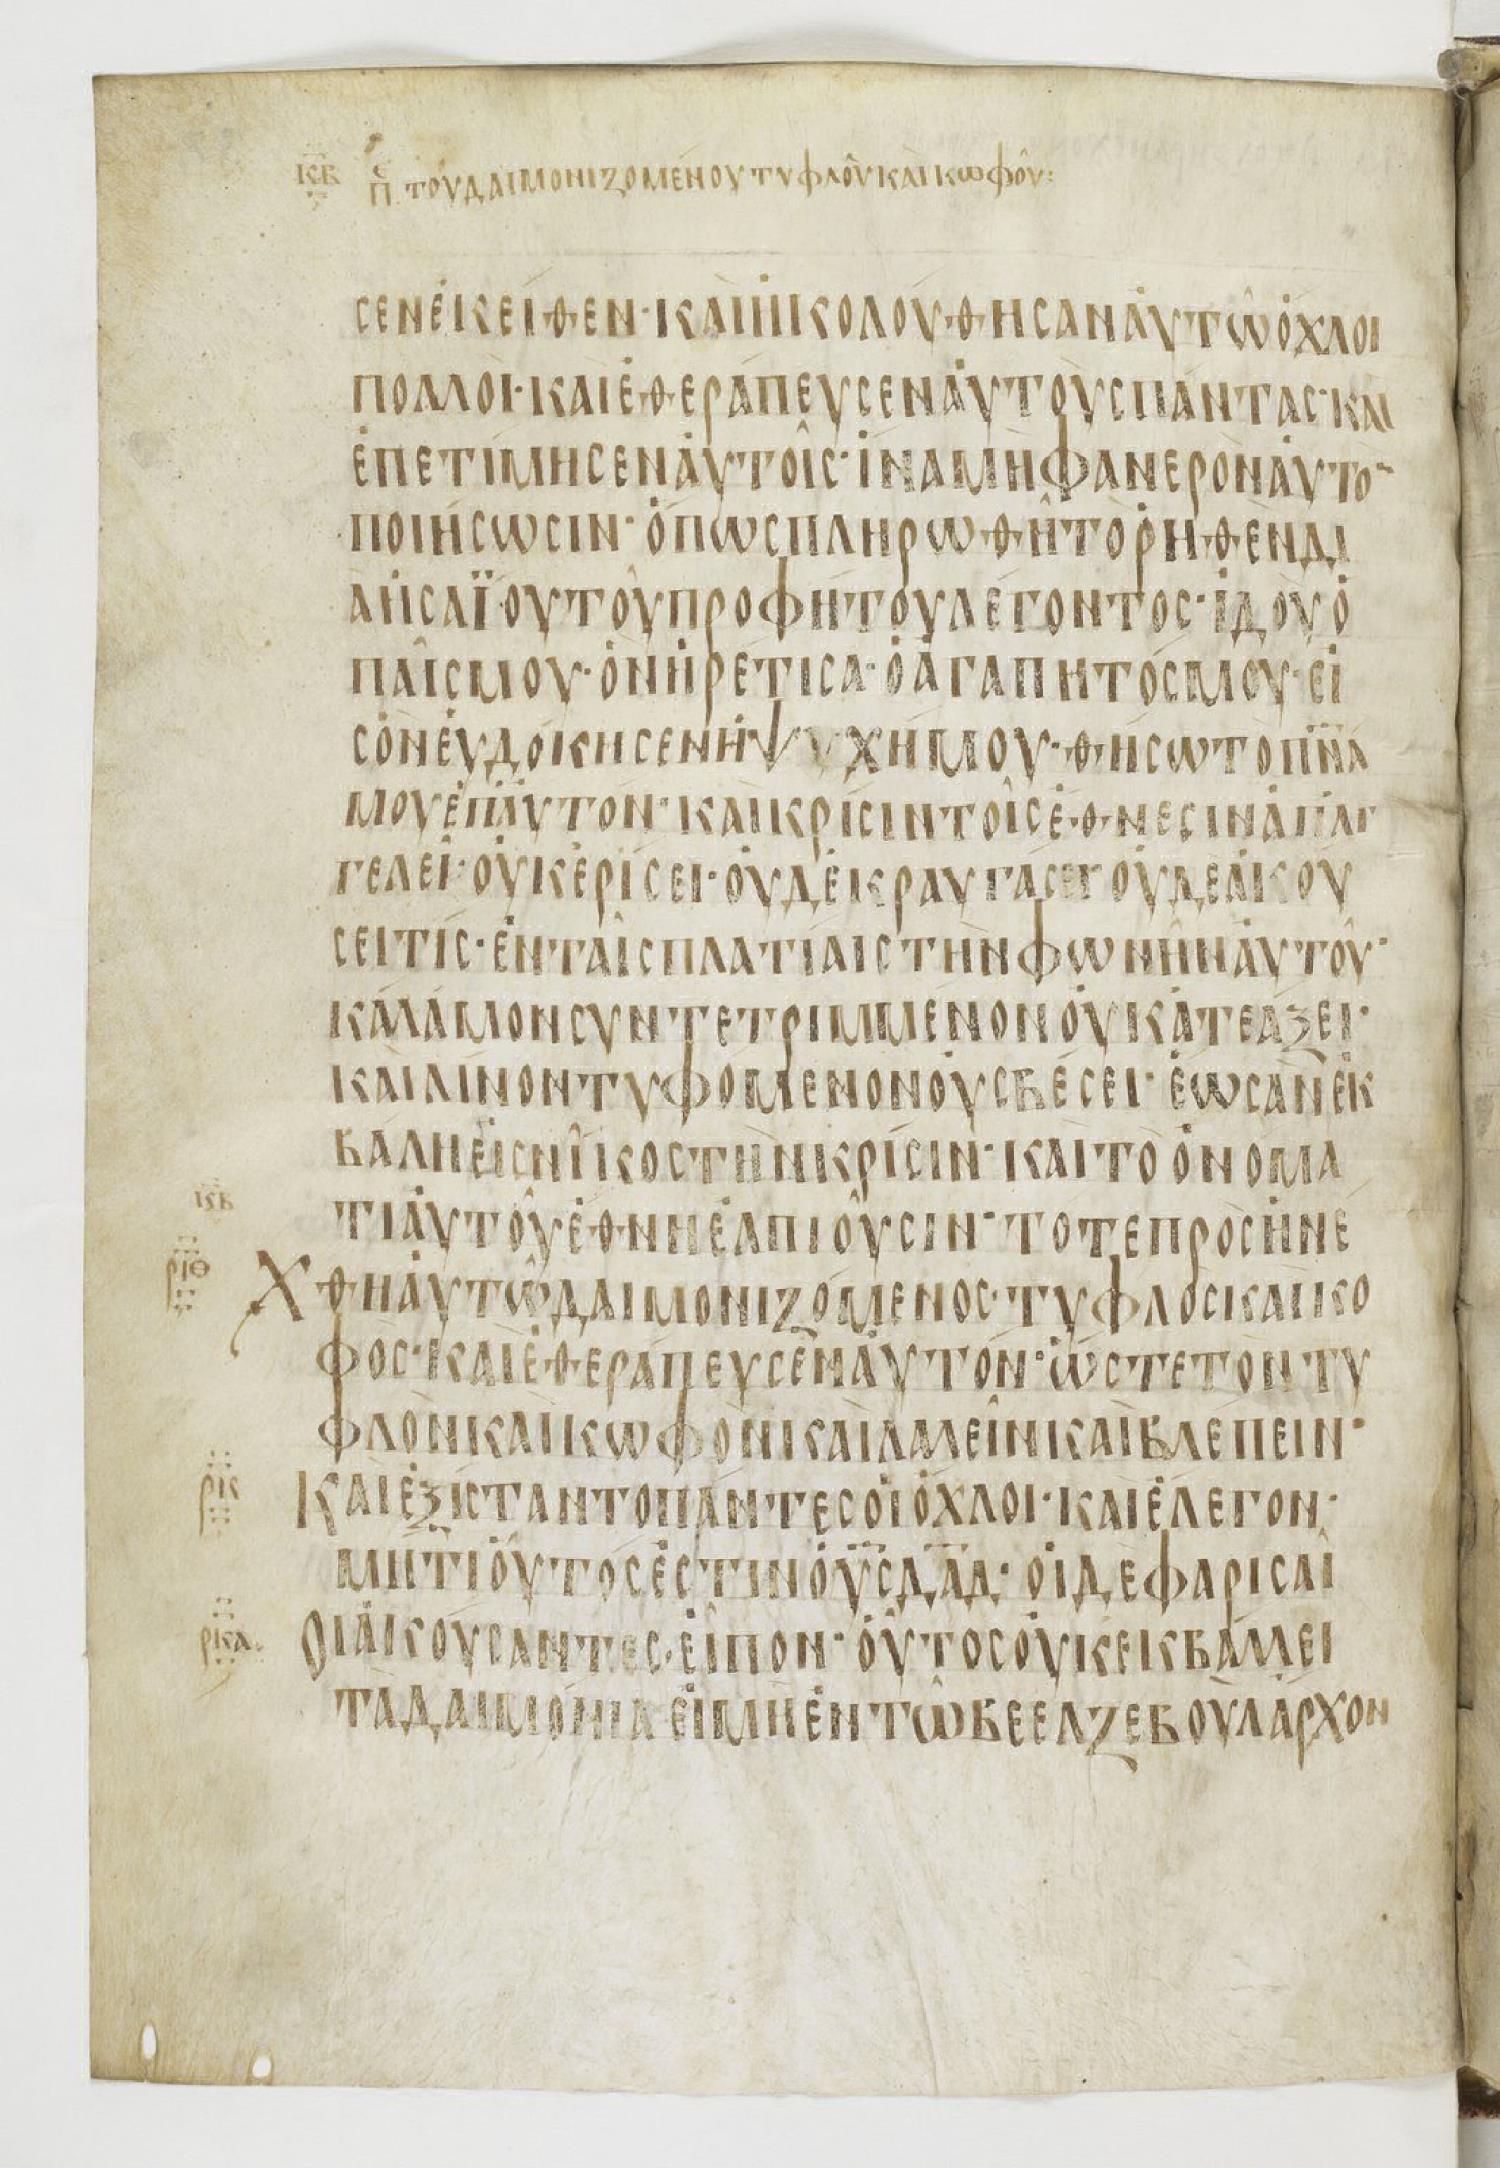 ΚΒ ΠΕ ΤΟΥ ΔΑΙΜΟΝΙΖΟΜΕΝΟΥ ΤΥΦΛΟΥ ΚΑΙ ΚΩΦΟΥ:
ΣΕΝ ΕΚΕΙΘΕΝ· ΚΑΙ ΗΚΟΛΟΥΘΗΣΑΝ ΑΥΤΩ ΟΧΛΟΙ
ΠΟΛΛΟΙ· ΚΑΙ ΕΘΕΡΑΠΕΥΣΕΝ ΑΥΤΟΥΣ ΠΑΝΤΑΣ· ΚΑΙ
ΕΠΕΤΙΜΗΣΕΝ ΑΥΤΟΙΣ· ΙΝΑ ΜΗ ΦΑΝΕΡΟΝ ΑΥΤΟ̅
ΠΟΙΗΣΩΣΙΝ· ΟΠΩΣ ΠΛΗΡΩΘΗ ΤΟ ΡΗΘΕΝ ΔΙ
Α ΗΣΑΪΟΥ ΤΟΥ ΠΡΟΦΗΤΟΥ ΛΕΓΟΝΤΟΣ· ΙΔΟΥ Ο
ΠΑΙΣ ΜΟΥ· ΟΝ ΗΡΕΤΙΣΑ· Ο ΑΓΑΠΗΤΟΣ ΜΟΥ· ΕΙ
Σ ΟΝ ΕΥΔΟΚΗΣΕΝ Η ΨΥΧΗ ΜΟΥ· ΘΗΣΩ ΤΟ ΠΝΑ
ΜΟΥ ΕΠ ΑΥΤΟΝ· ΚΑΙ ΚΡΙΣΙΝ ΤΟΙΣ ΕΘΝΕΣΙΝ ΑΠΑΓ
ΓΕΛΕΙ· ΟΥΚ ΕΡΙΣΕΙ· ΟΥΔΕ ΚΡΑΥΓΑΣΕΙ· ΟΥΔΕ ΑΚΟΥ
ΣΕΙ ΤΙΣ· ΕΝ ΤΑΙΣ ΠΛΑΤΙΑΙΣ ΤΗΝ ΦΩΝΗΝ ΑΥΤΟΥ·
ΚΑΛΑΜΟΝ ΣΥΝΤΕΤΡΙΜΜΕΝΟΝ ΟΥ ΚΑΤΕΑΞΕΙ·
ΚΑΙ ΛΙΝΟΝ ΤΥΦΟΜΕΝΟΝ ΟΥ ΣΒΕΣΕΙ· ΕΩΣ ΑΝ ΕΚ
ΒΑΛΗ ΕΙΣ ΝΙΚΟΣ ΤΗΝ ΚΡΙΣΙΝ· ΚΑΙ ΤΟ ΟΝΟΜΑ
ΤΙ ΑΥΤΟΥ ΕΘΝΗ ΕΛΠΙΟΥΣΙΝ· ΤΟΤΕ ΠΡΟΣΗΝΕ
ΡΙΘ ΧΘΗ ΑΥΤΩ ΔΑΙΜΟΝΙΖΟΜΕΝΟΣ· ΤΥΦΛΟΣ ΚΑΙ ΚΟ
ΦΟΣ· ΚΑΙ ΕΘΕΡΑΠΕΥΣΕΝ ΑΥΤΟΝ· ΩΣΤΕ ΤΟΝ ΤΥ
ΦΛΟΝ ΚΑΙ ΚΩΦΟΝ ΚΑΙ ΛΑΛΕΙΝ ΚΑΙ ΒΛΕΠΕΙΝ·
ΡΚ ΚΑΙ ΕΞΙΣΤΑΝΤΟ ΠΑΝΤΕΣ ΟΙ ΟΧΛΟΙ· ΚΑΙ ΕΛΕΓΟΝ·
ΜΗΤΙ ΟΥΤΟΣ ΕΣΤΙΝ Ο ΥΣ ΔΑΔ· ΟΙ ΔΕ ΦΑΡΙΣΑΙ
ΡΚΑ ΟΙ ΑΚΟΥΣΑΝΤΕΣ· ΕΙΠΟΝ· ΟΥΤΟΣ ΟΥΚ ΕΚΒΑΛΛΕΙ
ΤΑ ΔΑΙΜΟΝΙΑ ΕΙ ΜΗ ΕΝ ΤΩ ΒΕΕΛΖΕΒΟΥΛ ΑΡΧΟΝ